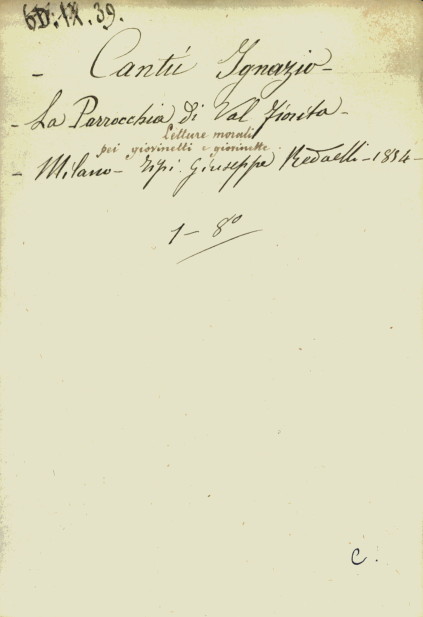 6D.IX.39.
- Cantú Ignazio -
- La Parrocchia di Val Fiorita -
Letture morali
pei giovinetti e giovinette.
- Milano - Tipi. Giuseppe Redaelli - 1854 -
1 - 8º
C.